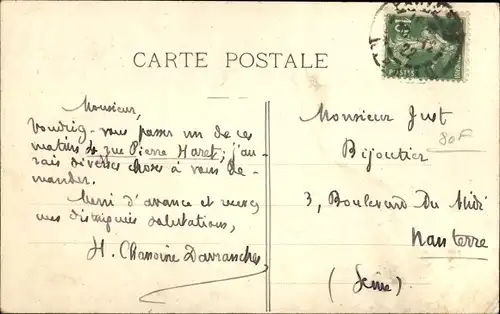 CARTE POSTALE
Monsieur,
Voudriez-vous passer un de ces
matins 4, rue Pierre Haret; j'au-
rais diverses choses à vous de-
mander.
Merci d'avance et veuillez
mes distinguées salutations,
H. Chanoine Davranches
Monsieur Just
Bijoutier
80F
3, Boulevard Du Midi
Nanterre
(Seine)